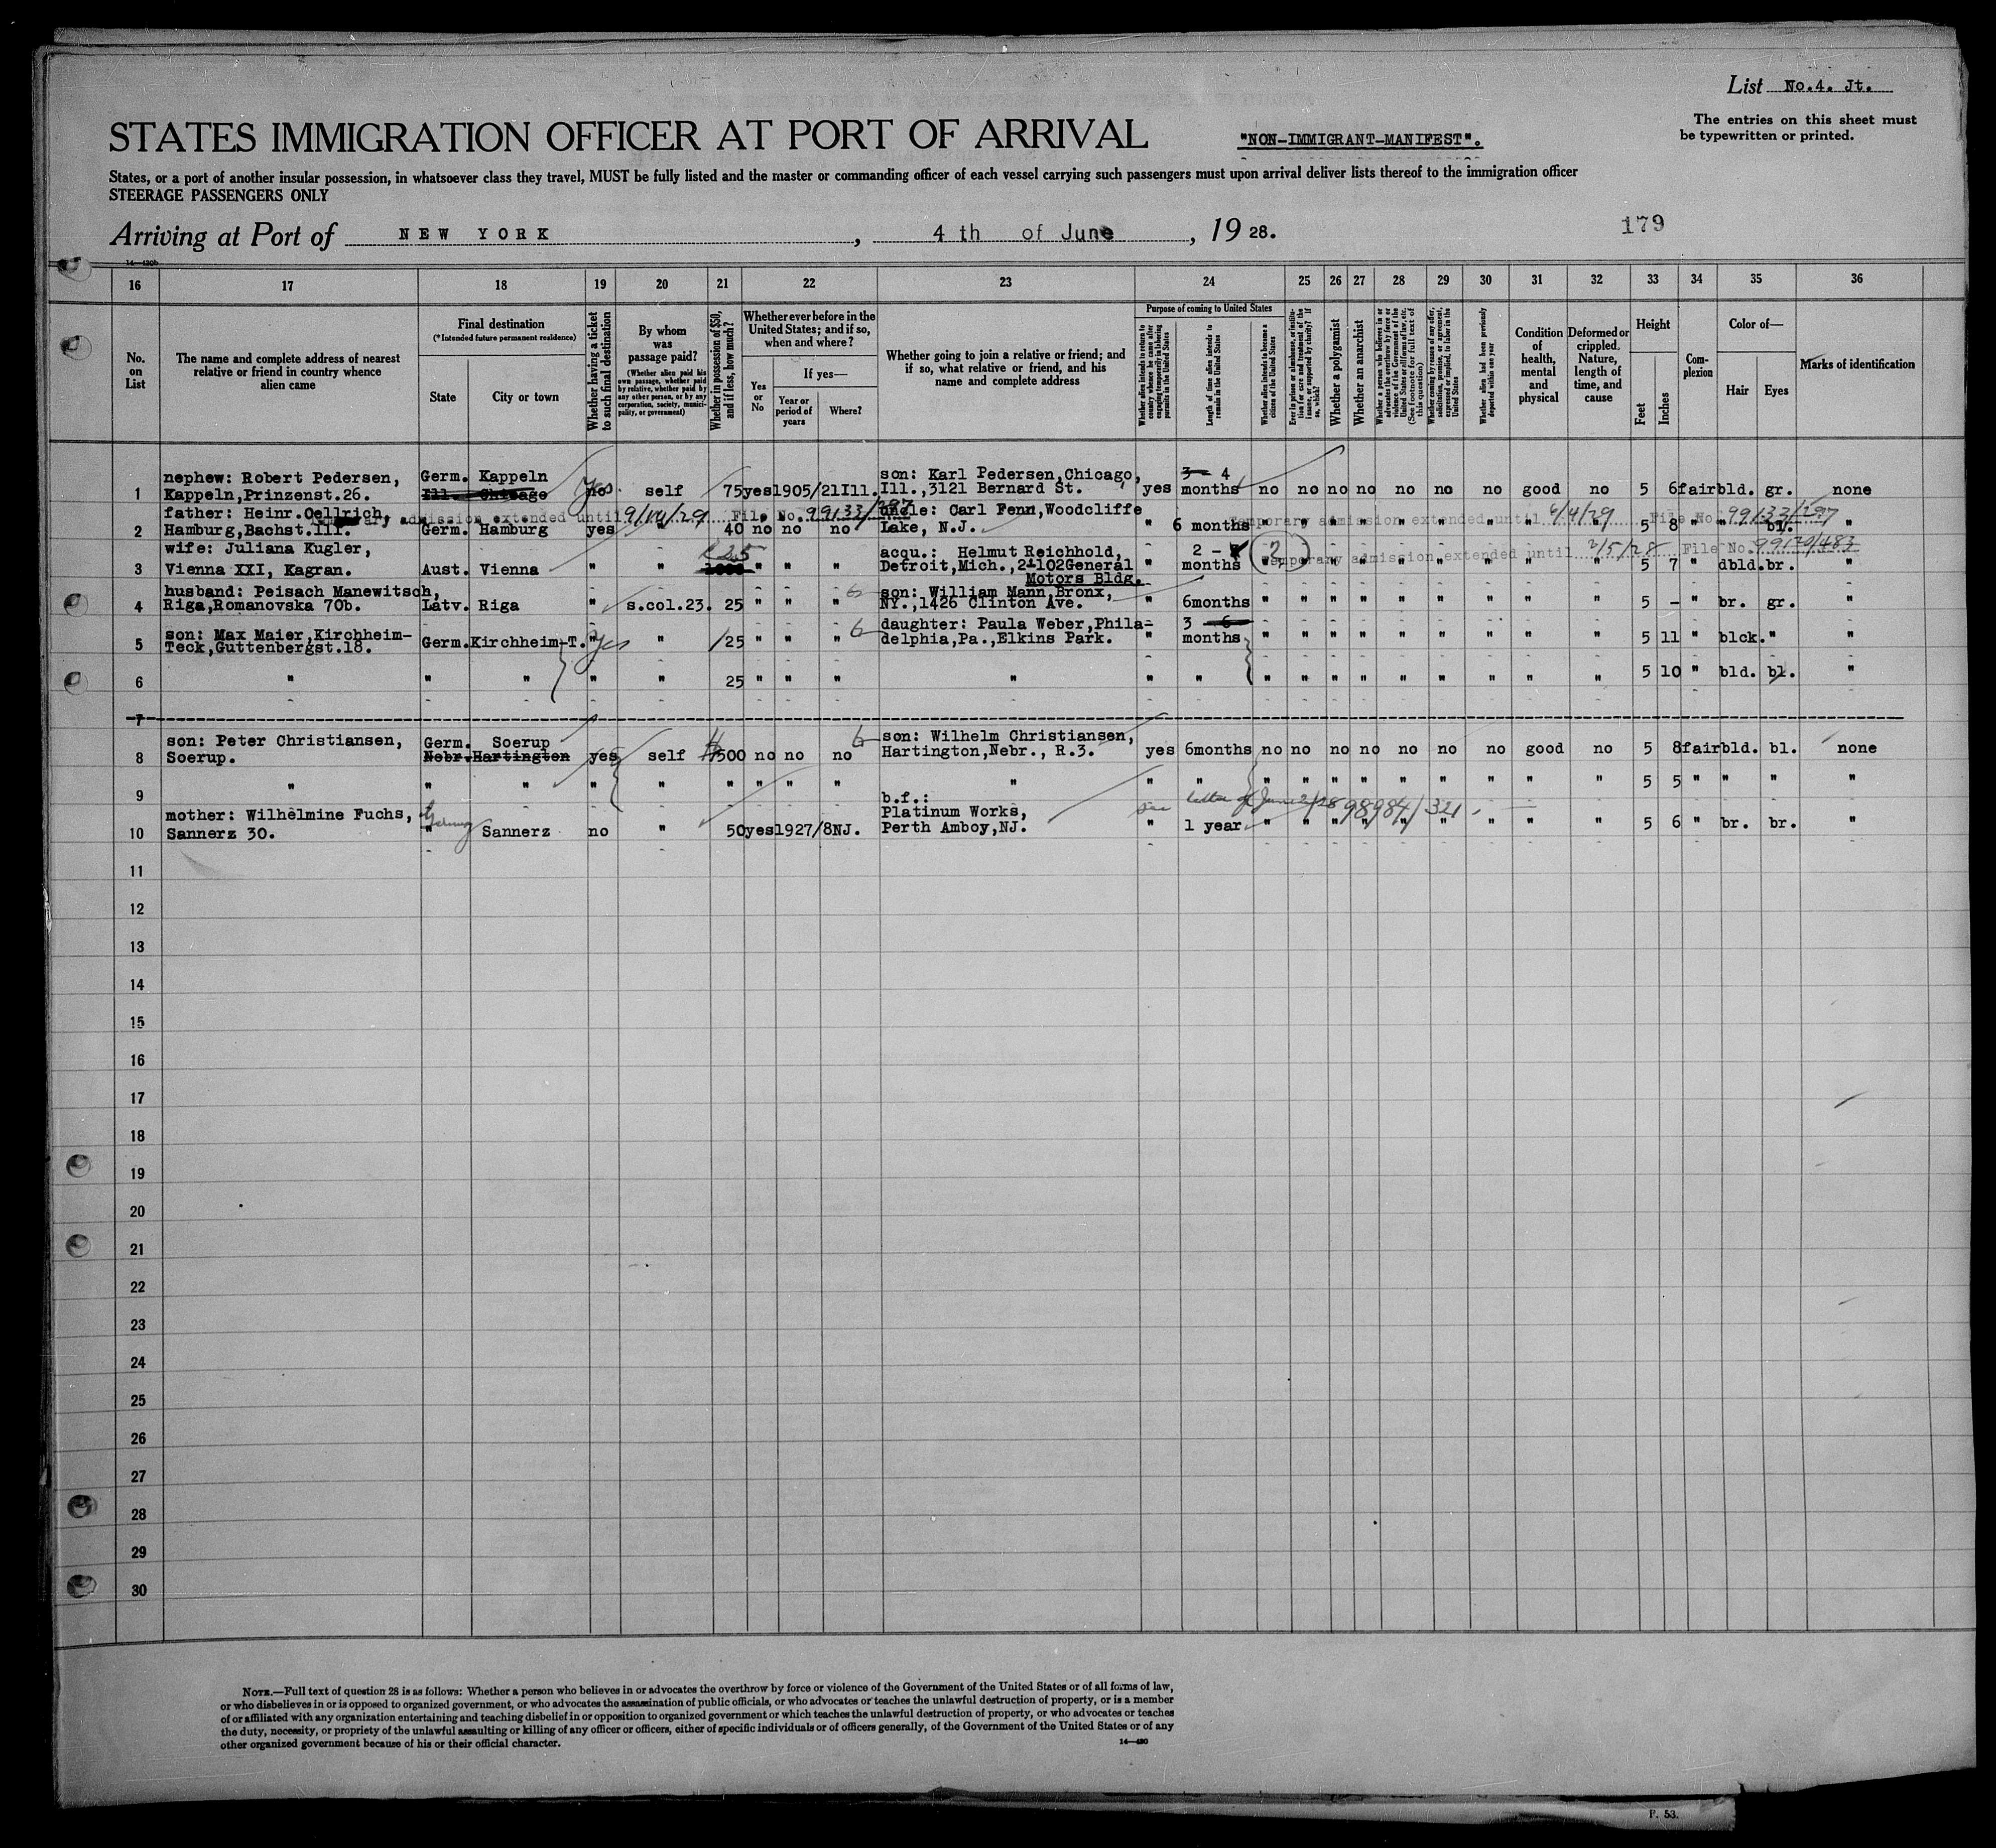 List No.4. Jt.
The entries on this sheet must
be typewritten or printed.
STATES IMMIGRATION OFFICER AT PORT OF ARRIVAL "NON-IMMIGRANT-MANIFEST".
States, or a port of another insular possession, in whatsoever class they travel, MUST be fully listed and the master or commanding officer of each vessel carrying such passengers must upon arrival deliver lists thereof to the immigration officer
STEERAGE PASSENGERS ONLY
Arriving at Port of NEW YORK, 4 th of June, 19 28.
179
14—430b
16 17 18 19 20 21 22 23 24 25 26 27 28 29 30 31 32 33 34 35 36
No. on List
The name and complete address of nearest
relative or friend in country whence
alien came
Final destination
(*Intended future permanent residence)
State
City or town
Whether having a ticket
to such final destination
By whom
was
passage paid?
(Whether alien paid his
own passage, whether paid
by relative, whether paid by
any other person, or by any
corporation, society, munici-
pality, or government)
Whether in possession of $50,
and if less, how much?
Whether ever before in the
United States; and if so,
when and where?
Yes
or
No
If yes—
Year or
period of
years
Where?
Whether going to join a relative or friend; and
if so, what relative or friend, and his
name and complete address
Purpose of coming to United States
Whether alien intends to return to
country whence he came after
engaging temporarily in laboring
pursuits in the United States
Length of time alien intends to
remain in the United States
Whether alien intends to become a
citizen of the United States
Whether a polygamist
Whether an anarchist
Whether alien had been previously
deported within one year
Condition
of
health,
mental
and
physical
Deformed or
crippled.
Nature,
length of
time, and
cause
Height
Feet
Inches
Com-
plexion
Color of—
Hair
Eyes
Marks of identification
nephew: Robert Pedersen, Germ. Kappeln son: Karl Pedersen,Chicago, 3 4
1 Kappeln,Prinzenst.26. Ill. Chicago no yes self 75 yes 1905/21 Ill. Ill.,3121 Bernard St. yes months no no no no no no no good no 5 6 fair bld. gr. none
father: Heinr.Oellrich, admission extended until 9/ /29 File No. 99133/ uncle: Carl Fenn,Woodcliffe
Temporary admission extended until 6/4/29 File No. 99133/297
2 Hamburg,Bachst.III. Germ. Hamburg yes " 40 no no no Lake, N.J. " 6 months " " " " " " " " " 5 8 " " bl. "
wife: Juliana Kugler, 25 acqu.: Helmut Reichhold, 2 - (2)
Temporary admission extended until 2/5/28 File No. 99129/483
3 Vienna XXI, Kagran. Aust. Vienna " " " " " Detroit,Mich.,2-102General months " " " " " " " " " 5 7 " dbld. br. "
Motors Bldg.
husband: Peisach Manewitsch, son: William Mann,Bronx,
4 Riga,Romanovska 70b. Latv. Riga " s.col.23. 25 " " " NY.,1426 Clinton Ave. " 6months " " " " " " " " " 5 - " br. gr. "
son: Max Maier,Kirchheim- daughter: Paula Weber,Phila- 3 6
5 Teck,Guttenbergst.18. Germ. Kirchheim-T. " yes " 25 " " " delphia,Pa.,Elkins Park. " months " " " " " " " " " 5 11 " blck. " "
6 " " " " " 25 " " " " " " " " " " " " " " " 5 10 " bld. bl. "
7
son: Peter Christiansen, Germ. Soerup son: Wilhelm Christiansen,
8 Soerup. Nebr. Hartington yes self 500 no no no Hartington,Nebr., R.3. yes 6months no no no no no no no good no 5 8 fair bld. bl. none
9 " " " " " " " " " " " " " " " " " " " " " 5 5 " " " "
mother: Wilhelmine Fuchs, Germany b.f.:
Platinum Works, see letter of June 2/28 98984/321
10 Sannerz 30. " Sannerz no " 50 yes 1927/8 NJ. Perth Amboy,NJ. " 1 year " " " " " " " " " 5 6 " br. br. "
11
12
13
14
15
16
17
18
19
20
21
22
23
24
25
26
27
28
29
30
NOTE.—Full text of question 28 is as follows: Whether a person who believes in or advocates the overthrow by force or violence of the Government of the United States or of all forms of law,
or who disbelieves in or is opposed to organized government, or who advocates the assassination of public officials, or who advocates or teaches the unlawful destruction of property, or is a member
of or affiliated with any organization entertaining and teaching disbelief in or opposition to organized government or which teaches the unlawful destruction of property, or who advocates or teaches
the duty, necessity, or propriety of the unlawful assaulting or killing of any officer or officers, either of specific individuals or of officers generally, of the Government of the United States or of any
other organized government because of his or their official character.
14—430
F. 53.